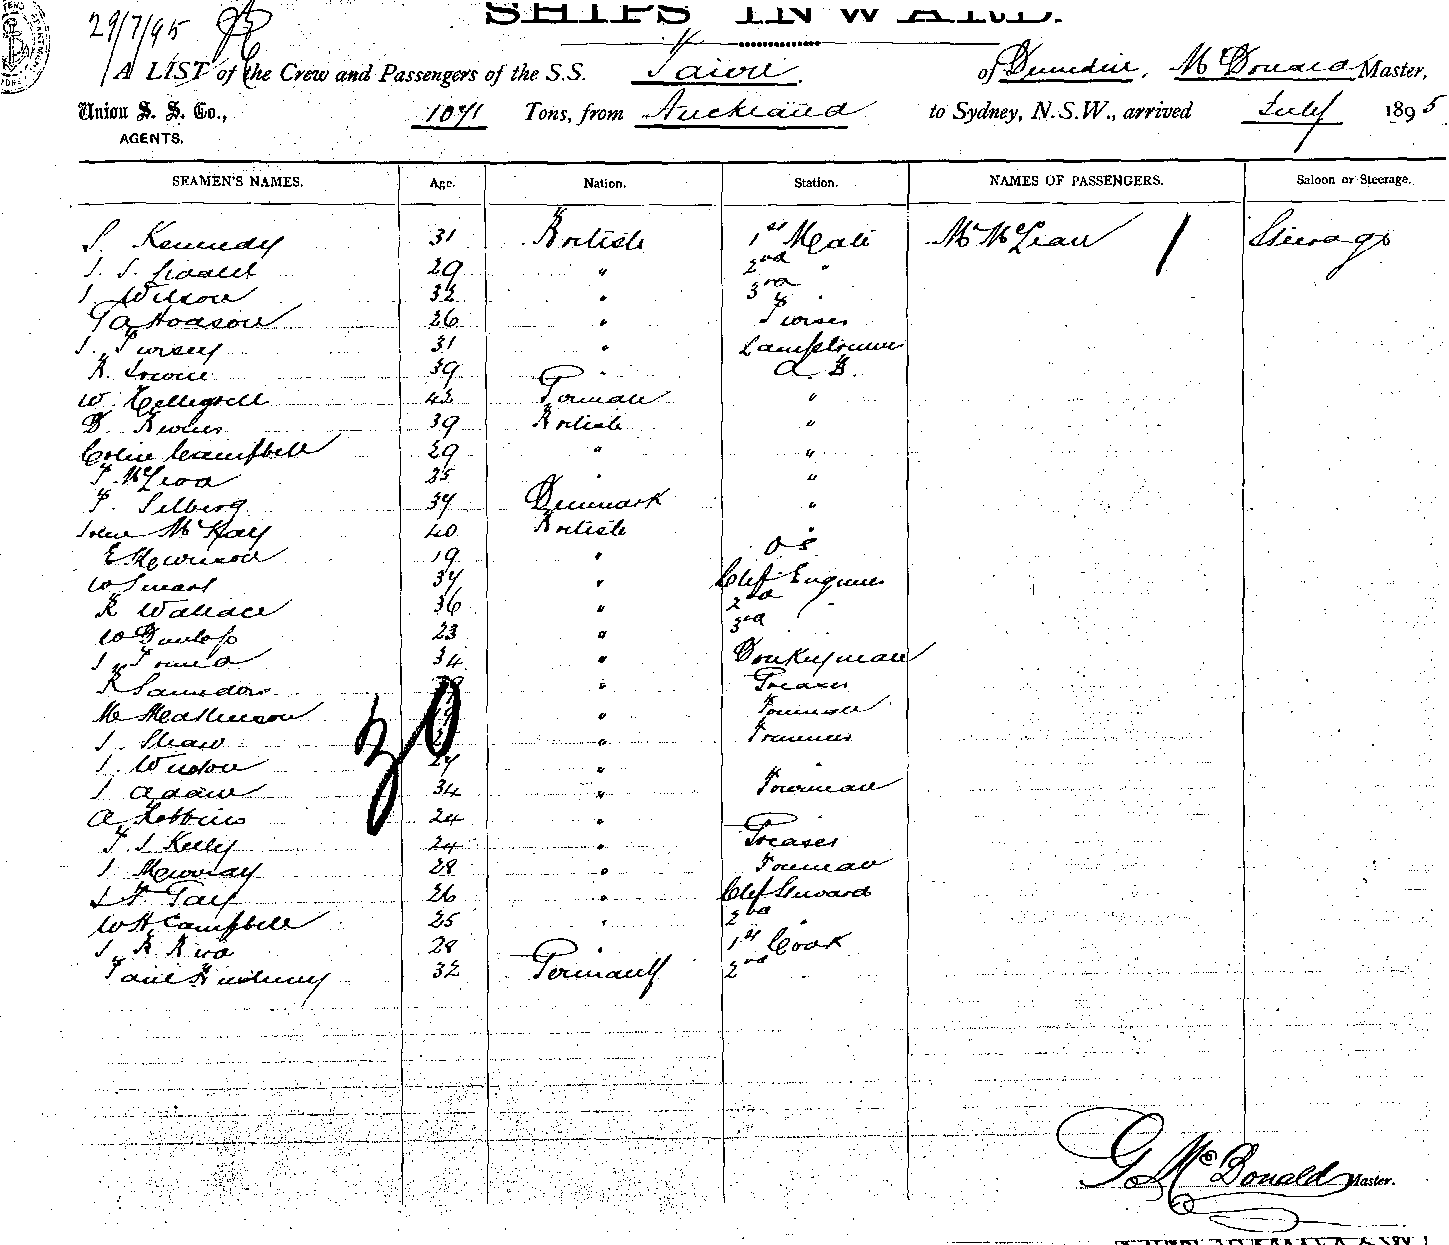 29/7/95
SHIPS INWARD.
A LIST of the Crew and Passengers of the S.S. Taiori. of Dunedin, McDonald Master,
Union S. S. Co., 1071 Tons, from Auckland to Sydney, N.S.W., arrived July 1895
AGENTS.
SEAMEN'S NAMES. Age. Nation. Station. NAMES OF PASSENGERS. Saloon or Steerage.
S. Kennedy 31 British 1st Mate Mr McLean / Steerage
29 " 2nd "
J Wilson 32 " 3rd "
G A Hodson 26 " Purser
31 " Lamptrimmer
39 " A. B.
W. 42 German "
39 British "
Colin Campbell 29 " "
F. McLeod 25 " "
F. Selberg 37 Denmark "
McKay 40 British "
19 " O S
W Smart 37 " Chf Engineer
R Wallace 36 " 2nd "
W Dunlop 23 " 3rd
34 " Donkeyman
R Saunders " Greaser
M Mathewson " Fireman
J. Shaw " Trimmer
27 "
J Adair 34 " Fireman
A Robbins 24 "
F. J Kelly 24 " Greaser
J Murray 28 " Fireman
26 " Chf Steward
W H Campbell 25 " 2nd "
28 " 1st Cook
32 Germany 2nd
30
G McDonald Master.